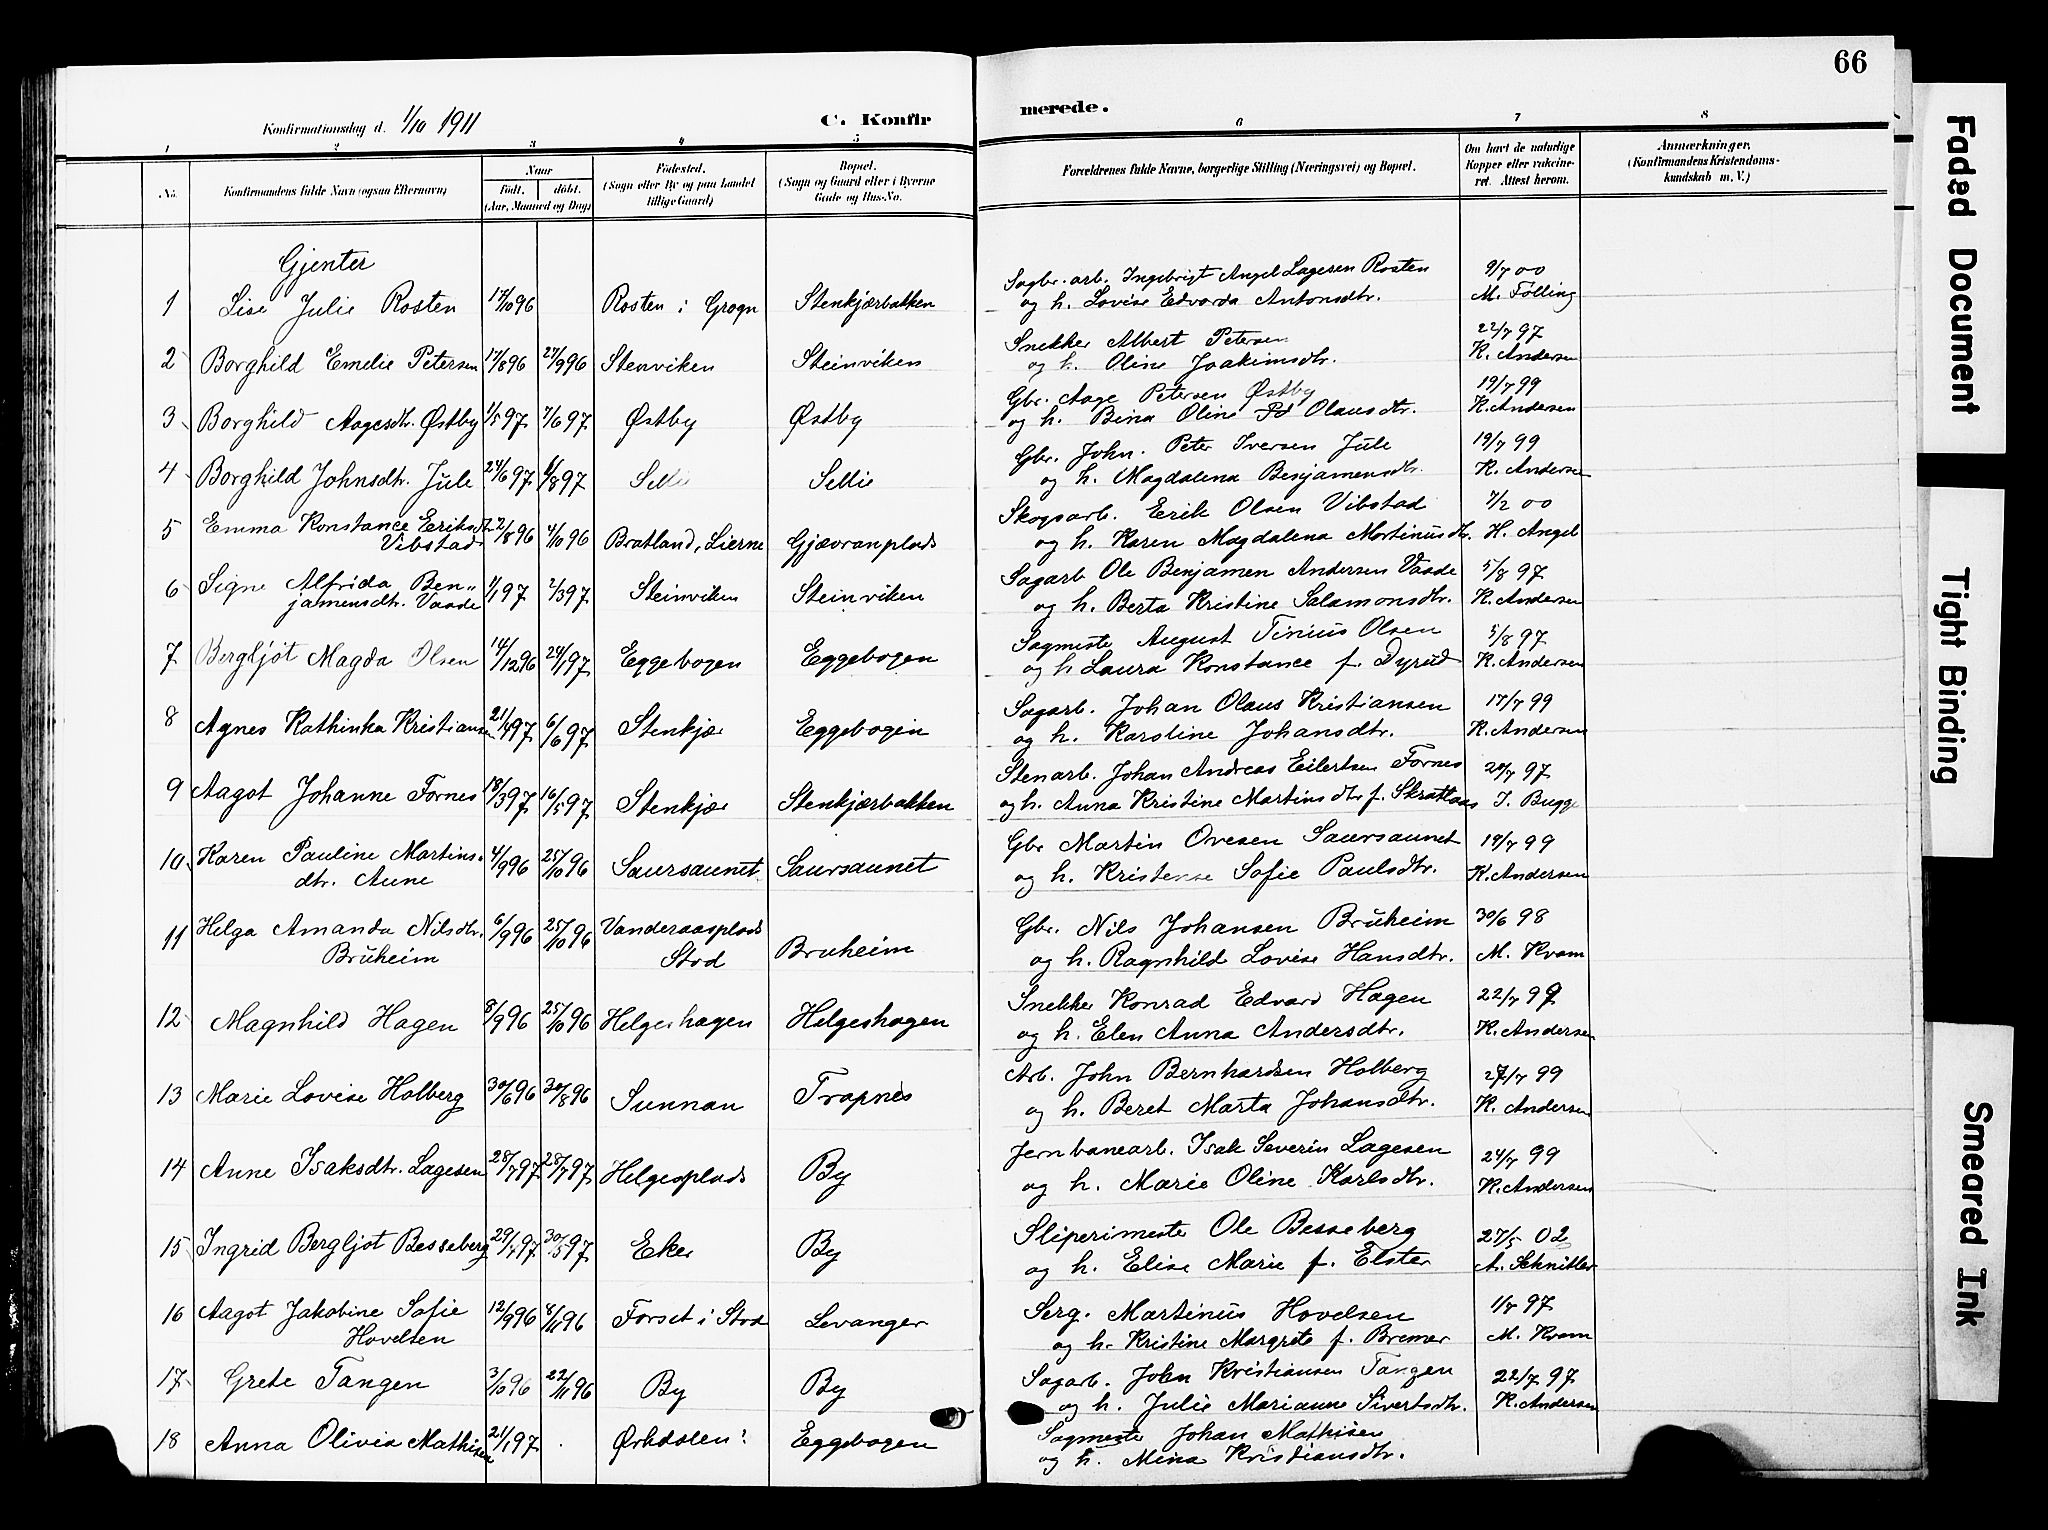 66
Konfirmationsdag d. 1/10 1911
C. Konfirmerede.
1 2 3 4 5 6 7 8
No. Konfirmandens fulde Navn (ogsaa Efternavn) Naar Født. døbt. (Aar, Maaned og Dag) Fødested. (Sogn eller By og paa Landet tillige Gaard) Bopæl. (Sogn og Gaard eller i Byerne Gade og Hus-No. Forældrenes fulde Navne, borgerlige Stilling (Næringsvei) og Bopæl. Om havt de naturlige Kopper eller vakcineret. Attest herom. Anmærkninger. (Konfirmandens Kristendomskundskab m. V.)
Gjenter
1 Lise Julie Rosten 17/10 96 Rosten i Grogn Stenkjærbakken Sagbr. arb. Ingebrigt Angel Lagesen Rosten 9/7 00
og h. Lovise Edvarda Antonsdtr. M. Følling
2 Borghild Emelie Petersen 17/8 96 27/9 96 Stenviken Steinviken Snekker Albert Petersen 22/7 97
og h. Oline Joakimsdtr. K. Andersen
3 Borghild Aagesdtr. Østby 1/5 97 7/6 97 Østby Østby Gbr. Aage Petersen Østby 19/7 99
og h. Bina Oline Olausdtr. K. Andersen
4 Borghild Johnsdtr. Jule 24/6 97 1/8 97 Selli Sellie Gbr. John Peter Iversen Jule 19/7 99
og h. Magdalena Benjamensdtr. K. Andersen
5 Emma Konstance Eriksdtr. 2/8 96 4/10 96 Bratland, Lierne Gjævranplads Skogsarb. Erik Olsen Vibstad 7/2 00
Vibstad og h. Karen Magdalena Martinusdtr. H. Angel
6 Signe Alfrida Ben„ 1/1 97 2/3 97 Steinviken Steinviken Sagarb Ole Benjamen Andersen Vaade 5/8 97
jamensdtr. Vaade og h. Berta Kristine Salamonsdtr. K. Andersen
7 Bergljot Magda Olsen 14/12 96 24/1 97 Eggebogen Eggebogen Sagmeste August Tinius Olsen 5/8 97
og h Laura Konstance f. Dyrud K. Andersen
8 Agnes Kathinka Kristiansen 21/1 97 6/6 97 Stenkjær Eggebogen Sagarb. Johan Olaus Kristiansen 17/7 99
og h. Karoline Johansdtr. K. Andersen
9 Aagot Johanne Fornes 18/3 97 16/5 97 Stenkjær Stenkjærbakken Stenarb. Johan Andreas Eilertsen Fornes 20/7 97
og h. Anna Kristine Martinsdtr f. Skrattaas J. Bugge
10 Karen Pauline Martins- 4/9 96 25/10 96 Saursaunet Saursaunet Gbr Martin Ovesen Saursaunet 19/7 99
dtr. Aune og h. Kristense Sofie Paulsdtr. K. Andersen
11 Helga Amanda Nilsdtr. 6/9 96 25/10 96 Vanderaasplads Bruheim Gbr. Nils Johansen Bruheim 30/6 98
Bruheim Stod og h. Ragnhild Lovise Hansdtr. M. Kvam
12 Magnhild Hagen 8/9 96 25/10 96 Helgeshagen Helgeshagen Snekker Konrad Edvard Hagen 22/7 99
og h. Elen Anna Andersdtr. K. Andersen
13 Marie Lovise Holberg 30/6 96 30/8 96 Sunnan Trapnes Arb. John Bernhardsen Holberg 27/7 99
og h. Beret Marta Johansdtr. K. Andersen
14 Anne Isaksdtr. Lagesen 28/7 97 28/7 97 Helgesplads By Jernbanearb. Isak Severin Lagesen 24/7 99
og h. Marie Oline Karlsdtr. K. Andersen
15 Ingrid Bergljot Besseberg 29/4 97 30/5 97 Eker By Sliperimeste Ole Besseberg 27/5 02
og h. Elise Marie f. Elster A. Schnitler
16 Aagot Jakobine Sofie 12/9 96 8/11 96 Forset i Stod Levanger Serg. Martinus Hovelsen 1/7 97
Hovelsen og h. Kristine Margrete f. Bremer M. Kvam
17 Grete Tangen 3/10 96 22/11 96 By By Sagarb. John Kristiansen Tangen 22/7 97
og h. Julie Marianne Sivertsdtr. K. Andersen
18 Anna Olivia Mathisen 21/1 97 Ørkdalen? Eggebogen Sagmeste Johan Mathisen
og h. Mina Kristiansdtr.
Faded Document
Tight Binding
Smeared Ink